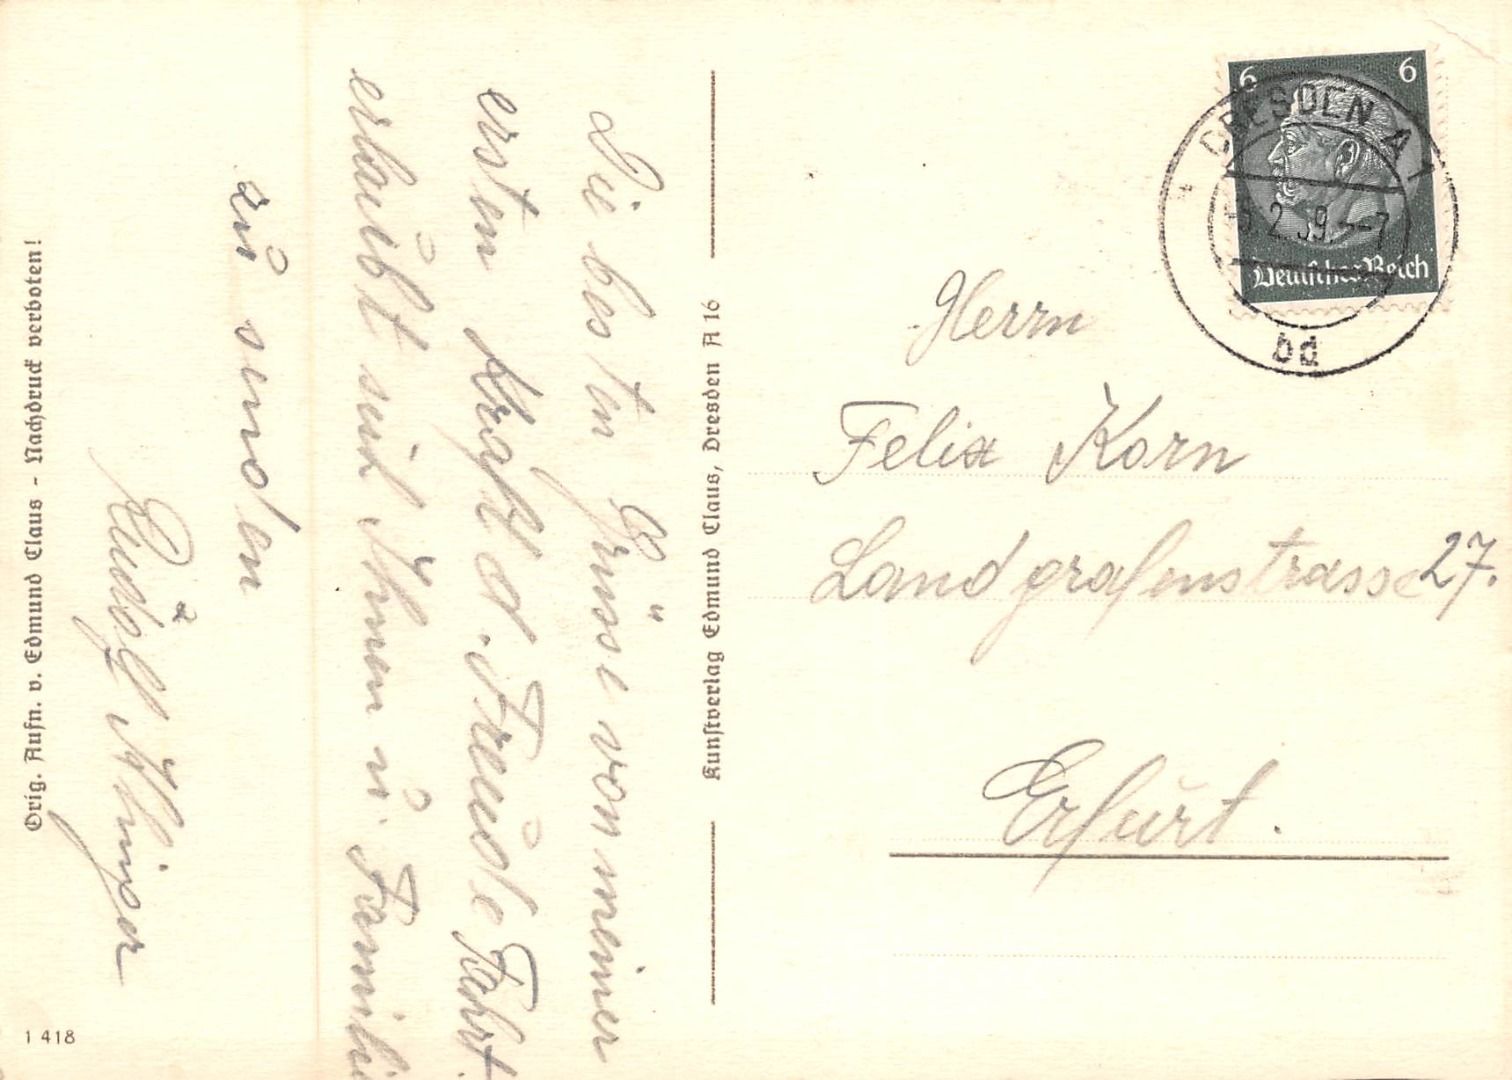 Die besten Grüsse von meiner
ersten Kraft d. Freude Fahrt.
erlaubt sich Ihnen u. Familie
zu senden
Rudolf
Orig. Aufn. v. Edmund Claus - Nachdruck verboten!
1 418
Kunstverlag Edmund Claus, Dresden A 16
6 6
Deutsches Reich
DRESDEN A 1
2.39.--7
bd
Herrn
Felix Korn
Landgrafenstrasse 27.
Erfurt.